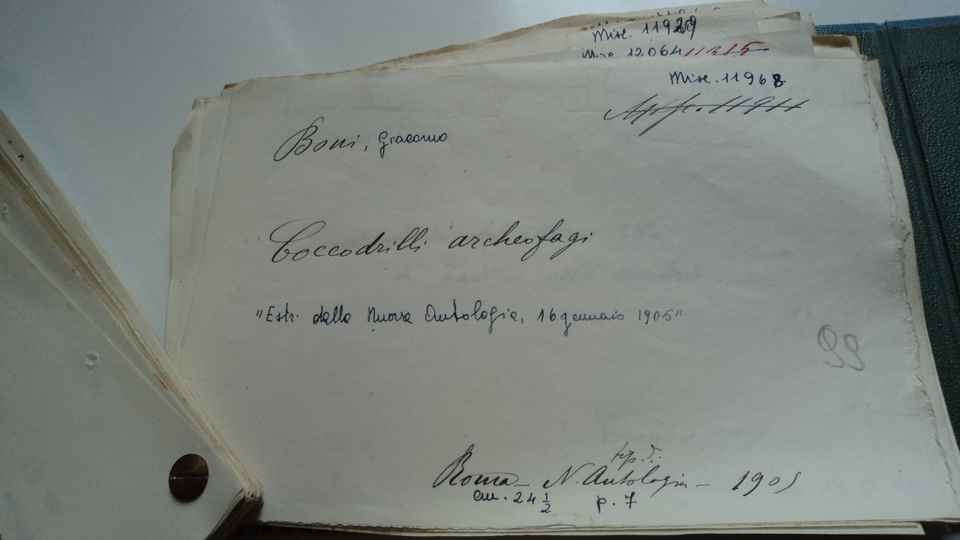 Misc. 11929
Misc. 12064 11215
Misc. 11968
Boni, Giacomo
Coccodrilli archeofagi
"Estr. dalla Nuova Antologia, 16 gennaio 1905"
99
tip. d.
Roma - N. Antologia - 1905
cm. 24 ½ p. 7